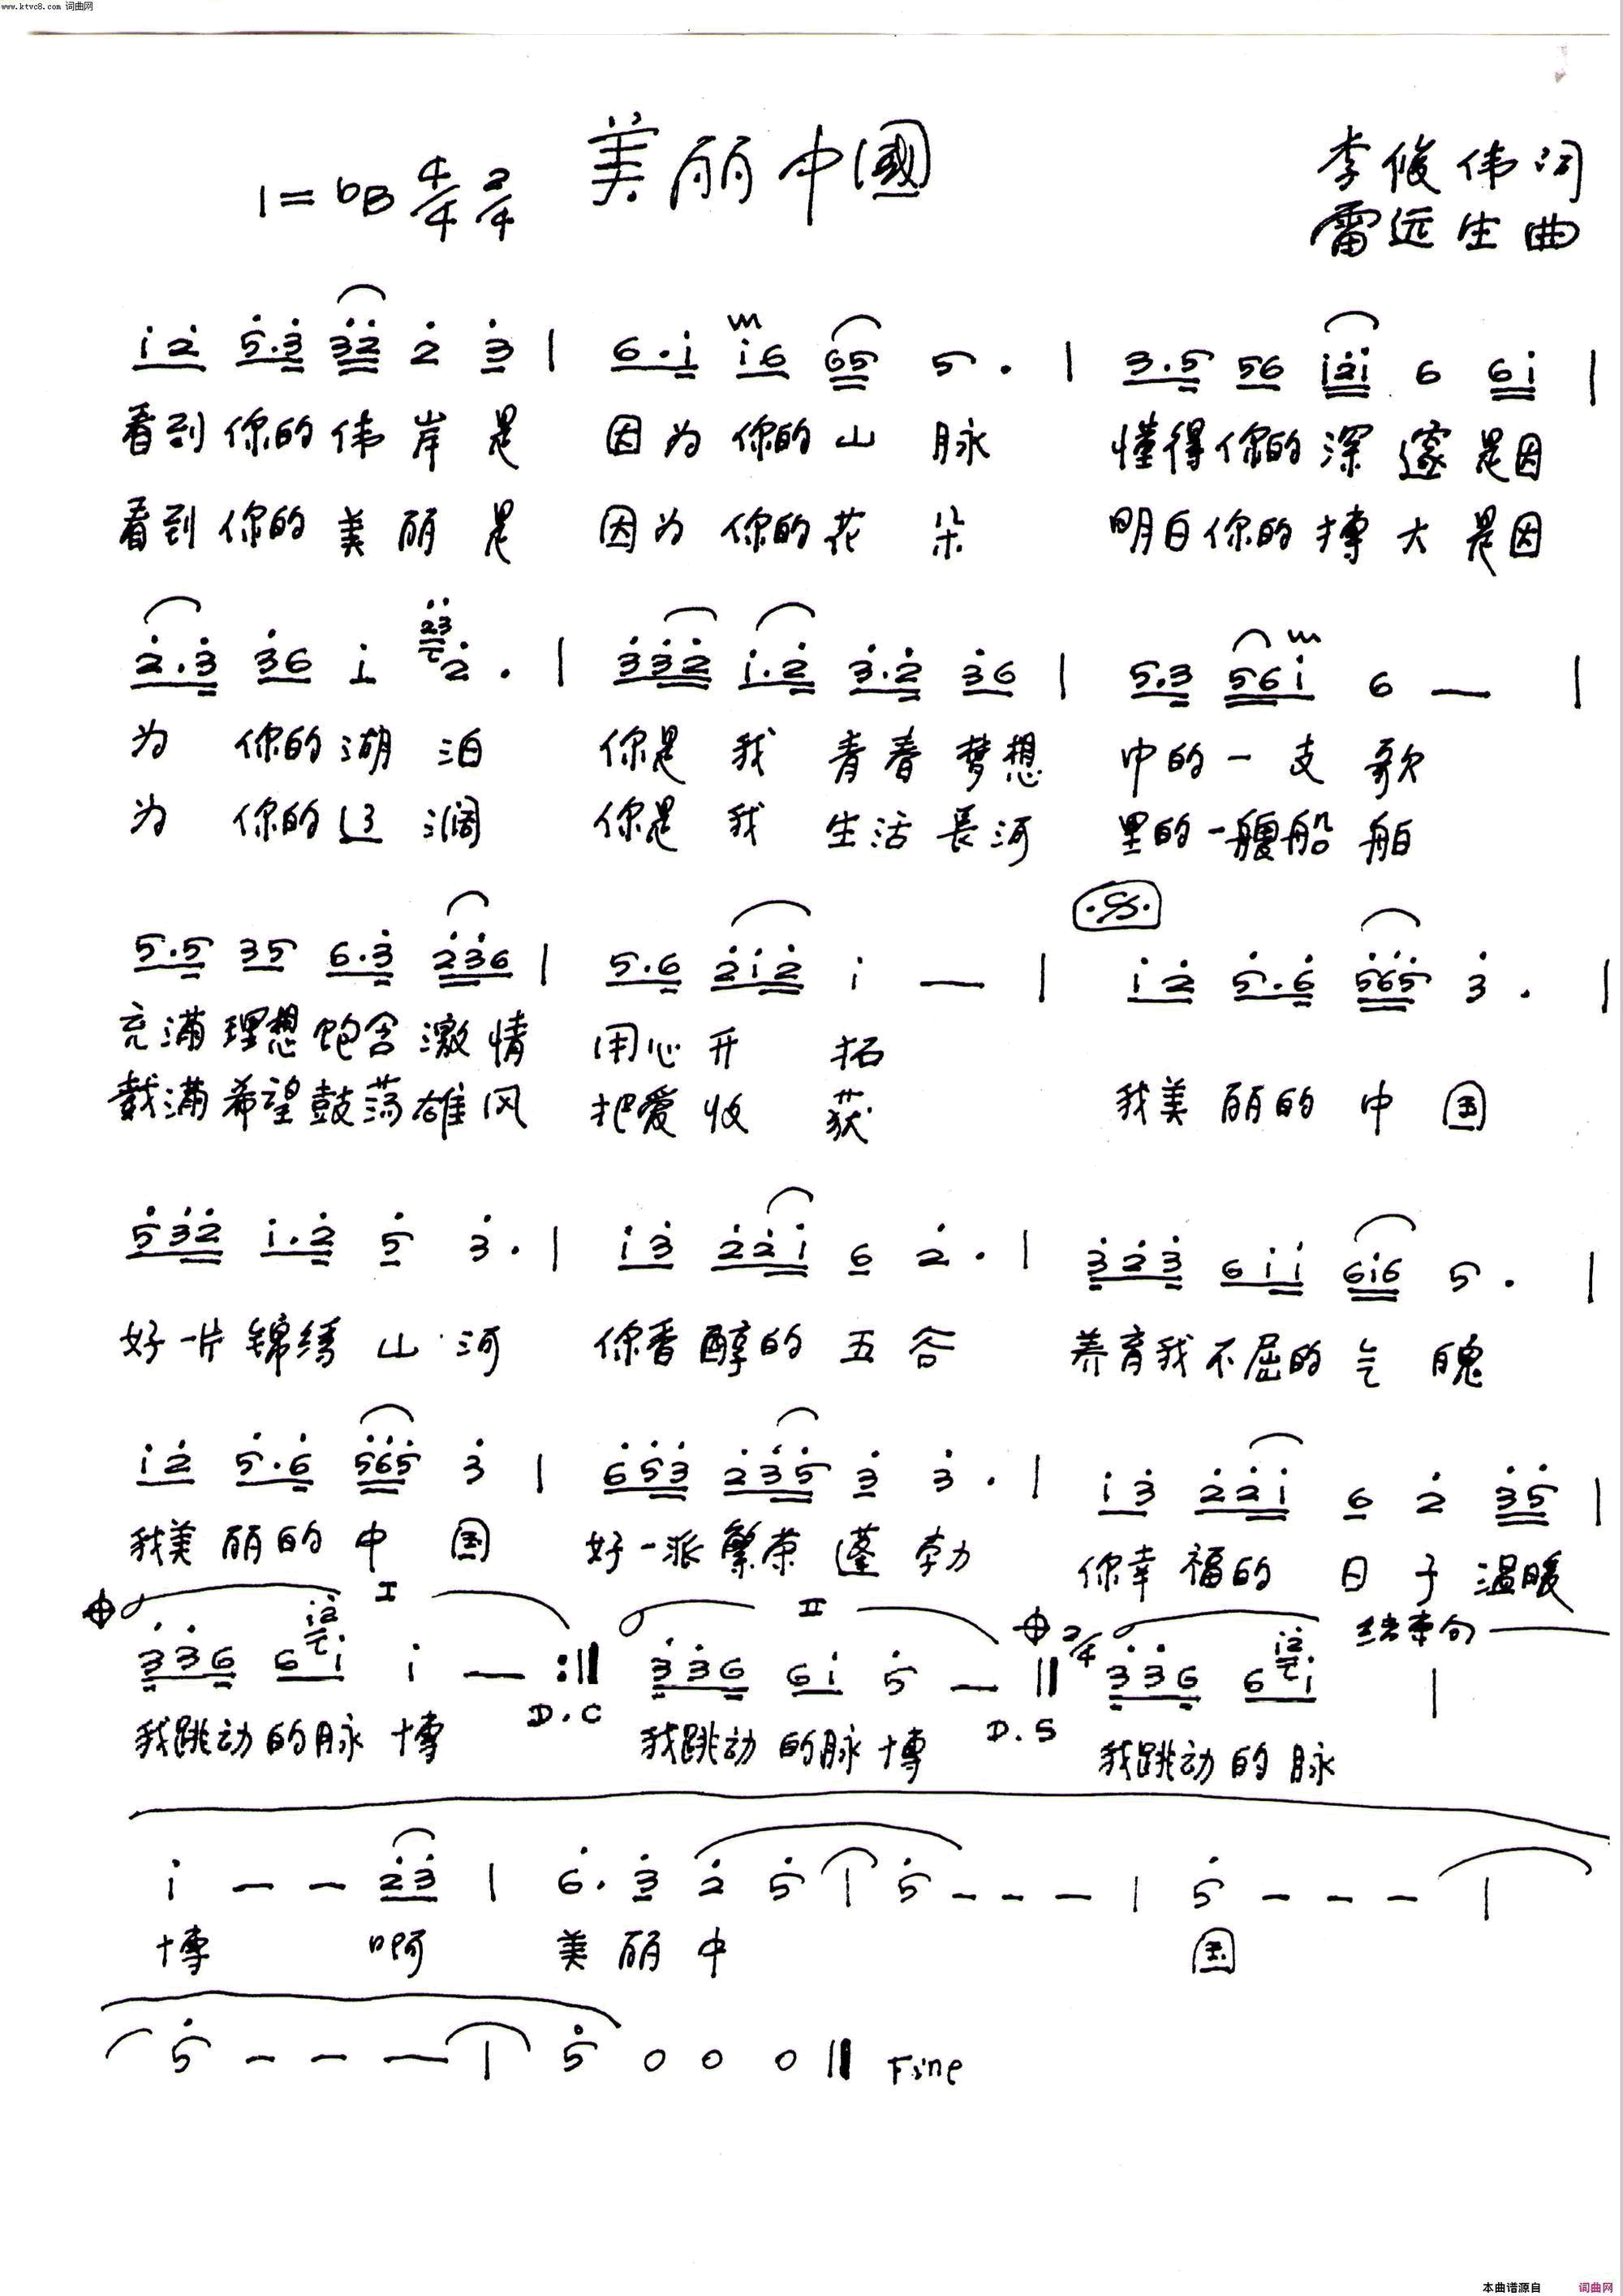 www.ktvc8.com 词曲网
美丽中國
1=bB 4/4 2/4
李俊伟词
雷远生曲
i2 5.3 32 2 3 | 6.i i6 65 5. | 3.5 56 i2i 6 6i |
看到你的伟岸是 因为你的山脉 懂得你的深邃是因
看到你的美丽是 因为你的花朵 明白你的博大是因
2.3 36 i 23 2. | 332 i.2 3.2 36 | 5.3 56i 6 — |
为你的湖泊 你是我青春梦想 中的一支歌
为你的辽阔 你是我生活長河 里的一艘船舶
5.5 35 6.3 236 | 5.6 2i2 i — | i2 5.6 565 3. |
充满理想饱含激情 用心开拓
载满希望鼓荡雄风 把爱收获 我美丽的中国
532 i.2 5 3. | i3 22i 6 2. | 323 6ii 6i6 5. |
好一片锦绣山河 你香醇的五谷 养育我不屈的气魄
i2 5.6 565 3 | 653 235 3 3. | i3 22i 6 2 35 |
我美丽的中国 好一派繁荣蓬勃 你幸福的日子温暖
I II 结束句
336 6 i2 i i — :|| 336 6i 5 — || 2/4 336 6 i2 i |
D.C D.S
我跳动的脉博 我跳动的脉博 我跳动的脉
i — — 23 | 6.3 2 5 | 5 — — — | 5 — — — |
博 啊 美丽中 国
5 — — — | 5 0 0 0 || Fine
本曲谱源自 词曲网